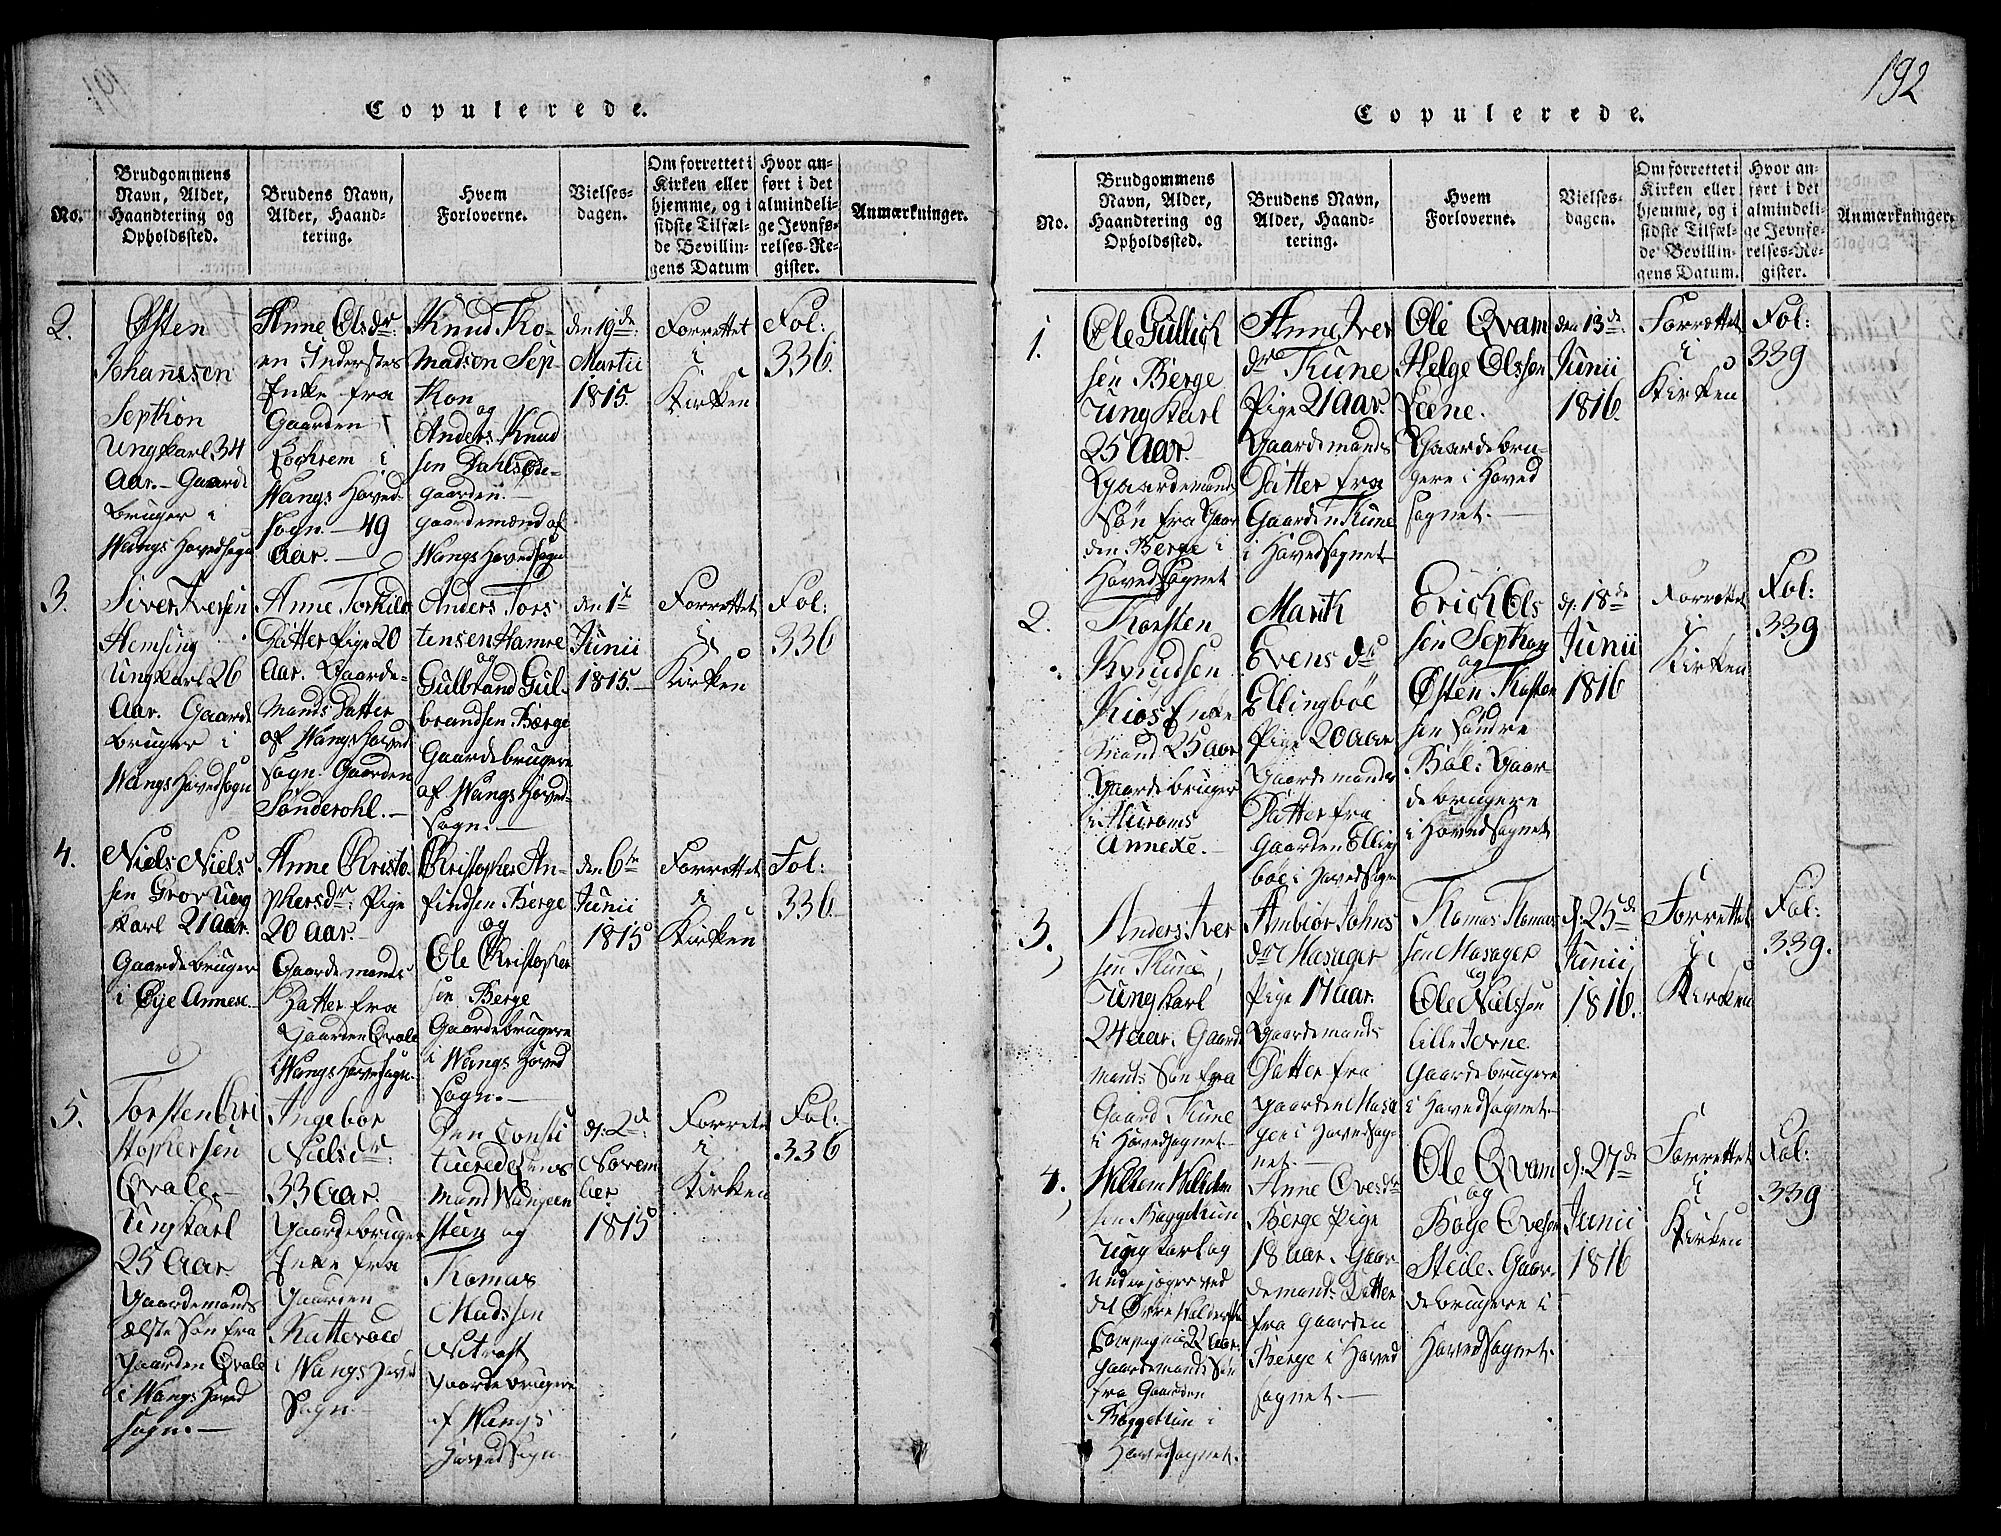 192
Copulerede.
No.
Brudgommens
Navn, Alder,
Haandtering og
Opholdssted.
Brudens Navn,
Alder, Haand-
tering.
Hvem
Forloverne.
Vielses-
dagen.
Om forrettet i
Kirken eller
hjemme, og i
sidste Tilfæl-
de Bevillin-
gens Datum
Hvor an-
ført i det
almindeli-
ge Jevnfø-
relses-Re-
gister.
Anmærkninger.
2.
Østen
Johanssen
Septhon
Ungkarl 34
Aar. - Gaarde
bruger i
Wangs Hovedsogn
Anne Olsdr:
en Inderstes
Enke fra
Gaarden
i
Wangs Hoved-
sogn. - 49
Aar. -
Knud Tho-
madsen Sep-
thon
og
Anders Knud
sen
gaarden. -
gaardemænd af
Wangs Hovedsogn
den 19de
Martii
1815.
Forrettet
i
Kirken
Fol:
336.
3.
Siver Iversen
Hemsing
Ungkarl 26
Aar. Gaarde
bruger i
Wangs Hovedsogn
Anne Torkilds
Datter Pige 20
Aar. Gaarde-
mands Datter
af Wangs Hoved
sogn. Gaarden
Sønderohl. -
Anders Tors
tensen Hamre
og
Gulbrand Gul-
brandsen Berge
Gaardebrugere
af Wangs Hoved-
sogn. -
den 1te
Junii
1815. -
Forrettet
i
Kirken
Fol:
336
4.
Niels Niels
sen Grov Ung
karl 21 aar.
Gaardebruger
i Øye Annexe. -
Anne Christo
phersdr: Pige
20 aar.
Gaardemands
Datter fra
Gaarden Qvale
Wangs Hovedsogn.
Christopher An-
findsen Berge
og
Ole Christopher
sen Berge
Gaardebrugere
i Wangs Hoved
Sogn. -
den 6te
Junii
1815
Forrettet
i
Kirken
Fol:
336.
5.
Torsten Cri
stophersen
Qvale. -
Ungkarl
25 Aar.
Gaardemands
ælste Søn fra
Gaarden Qvale
i Wangs Hoved
sogn. -
Ingebor
Nielsdr:
33 Aar.
Gaardebruger
Enke fra
Gaarden
Kattevold
i Wangs Hoved
Sogn. -
Den Consti
tuerede Lens
mand
steen og
Thomas
Madssen
gaardebrugere
af Wangs
Hovedsogn.
d: 2d:
Novem
ber
1815
Forrettet
i
Kirken
Fol:
336
Copulerede.
No.
Brudgommens
Navn, Alder,
Haandtering og
Opholdssted.
Brudens Navn,
Alder, Haand-
tering.
Hvem
Forloverne.
Vielses-
dagen.
Om forrettet i
Kirken eller
hjemme, og i
sidste Tilfæl-
de Bevillin-
gens Datum.
Hvor an-
ført i det
almindeli-
ge Jevnfø-
relses-Re-
gister.
Anmærkninger.
1.
Ole Gullich
sen Berge
Ung karl
25 Aar.
Gaardemands
Søn fra Gaar
den Berge i
Hovedsognet
Anne Iver
dr Thune
Pige 21 aar.
Gaardemands
Datter fra
Gaarden Thune
i Hovedsognet
Ole Qvam
Helge Olssen
Leene.
Gaardebru-
gere i Hoved
sognet. -
den 13de:
Junii
1816.
Forrettet
i
Kirken
Fol:
339
2.
Thorsten
Knudsen
Kiøs Enke
mand 25 aar
Gaardebruger
i Hurums
Annexe. -
Marith
Evens dr
Ellingbøe
Pige 20 aar
Gaardemands
Datter fra
Gaarden Elling
bøe i Hovedsogn
Erich Ols
sen Septhon
og
Østen Thosten
sen Søndre
Bøe: Gaar-
debrugere
i Hovedsognet
d: 18de
Junii
1816
Forrettet
i
Kirken
Fol:
339
3.
Anders Iver
sen Thune,
Ung karl
24 aar. Gaarde
mands Søn fra
Gaard Thune
i Hovedsognet -
Ambiør Johns
dr Hasager
Pige 17 aar.
Gaardemands
Datter fra
Gaarden Hasa
ger i Hovedsog-
net. -
Thomas Thomas
sen Hasager
og
Ole Nielssen
Lille
Gaardebrugere
i Hovedsognet
d: 25de
Junii
1816.
Forrettet
i
Kirken
Fol:
339.
4.
Willem Willem
sen Baggethun
Ung karl og
Underjæger ved
det
Compagnie 22 aar.
Gaardemands Søn
fra Gaarden
Baggethun i
Hovedsognet.
Anne Ovesdr
Berge Pige
18 aar. Gaar-
demands Datter
fra Gaarden
Berge i Hoved
sognet. -
Ole Qvam
og
Boye Ovesen
Steile. Gaar-
debrugere i
Hovedsognet.
d: 27de
Junii
1816
Forrettet
i
Kirken
Fol:
339